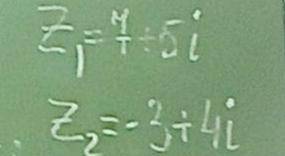 Z₁=7+5i
Z₂=-3+4i